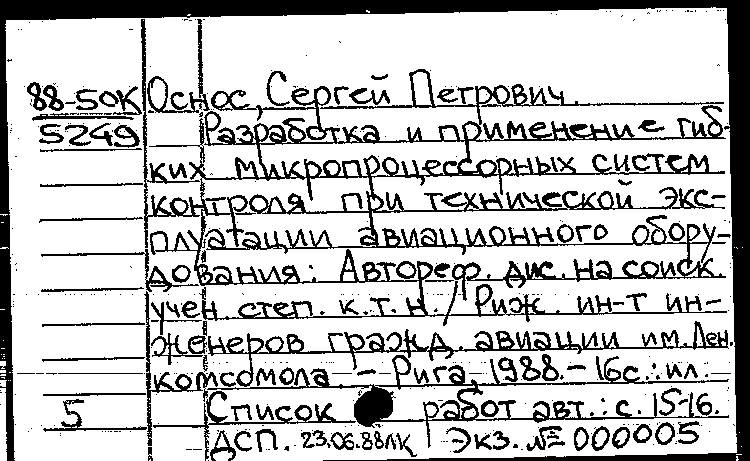 88-50К Оснос, Сергей Петрович.
5249 Разработка и применение гиб-
ких микропроцессорных систем
контроля при технической экс-
плуатации авиационного обору-
дования: Автореф. дис. на соиск.
учен. степ. к.т.н. / Риж. ин-т ин-
женеров гражд. авиации им. Лен.
комсомола. - Рига, 1988. - 16с.: ил.
5 Список работ авт.: с. 15-16.
ДСП. 23.06.88ЛК Экз. № 000005